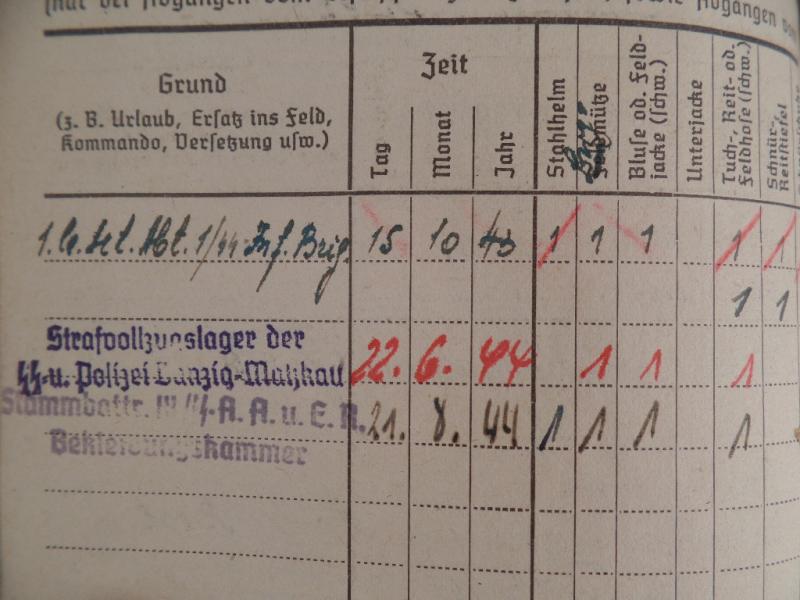 (nur bei Abgängen vom
Abgängen vom
Grund
(z. B. Urlaub, Ersatz ins Feld,
Kommando, Versetzung usw.)
Zeit
Tag
Monat
Jahr
Stahlhelm
Berg-
Feldmütze
Bluse od. Feld-
jacke (schw.)
Unterjacke
Tuch-, Reit- od.
Feldhose (schw.)
Schnür-,
Reitstiefel
Abt. 1/SS Inf. Brig. 15 10 43 1 1 1 1 1
1 1
Strafvollzugslager der
SS-u. Polizei Danzig-Matzkau 22. 6. 44 1 1 1
Stammbattr. SS-A. A. u. E. R. 21. 8. 44 1 1 1 1
Bekleidungskammer